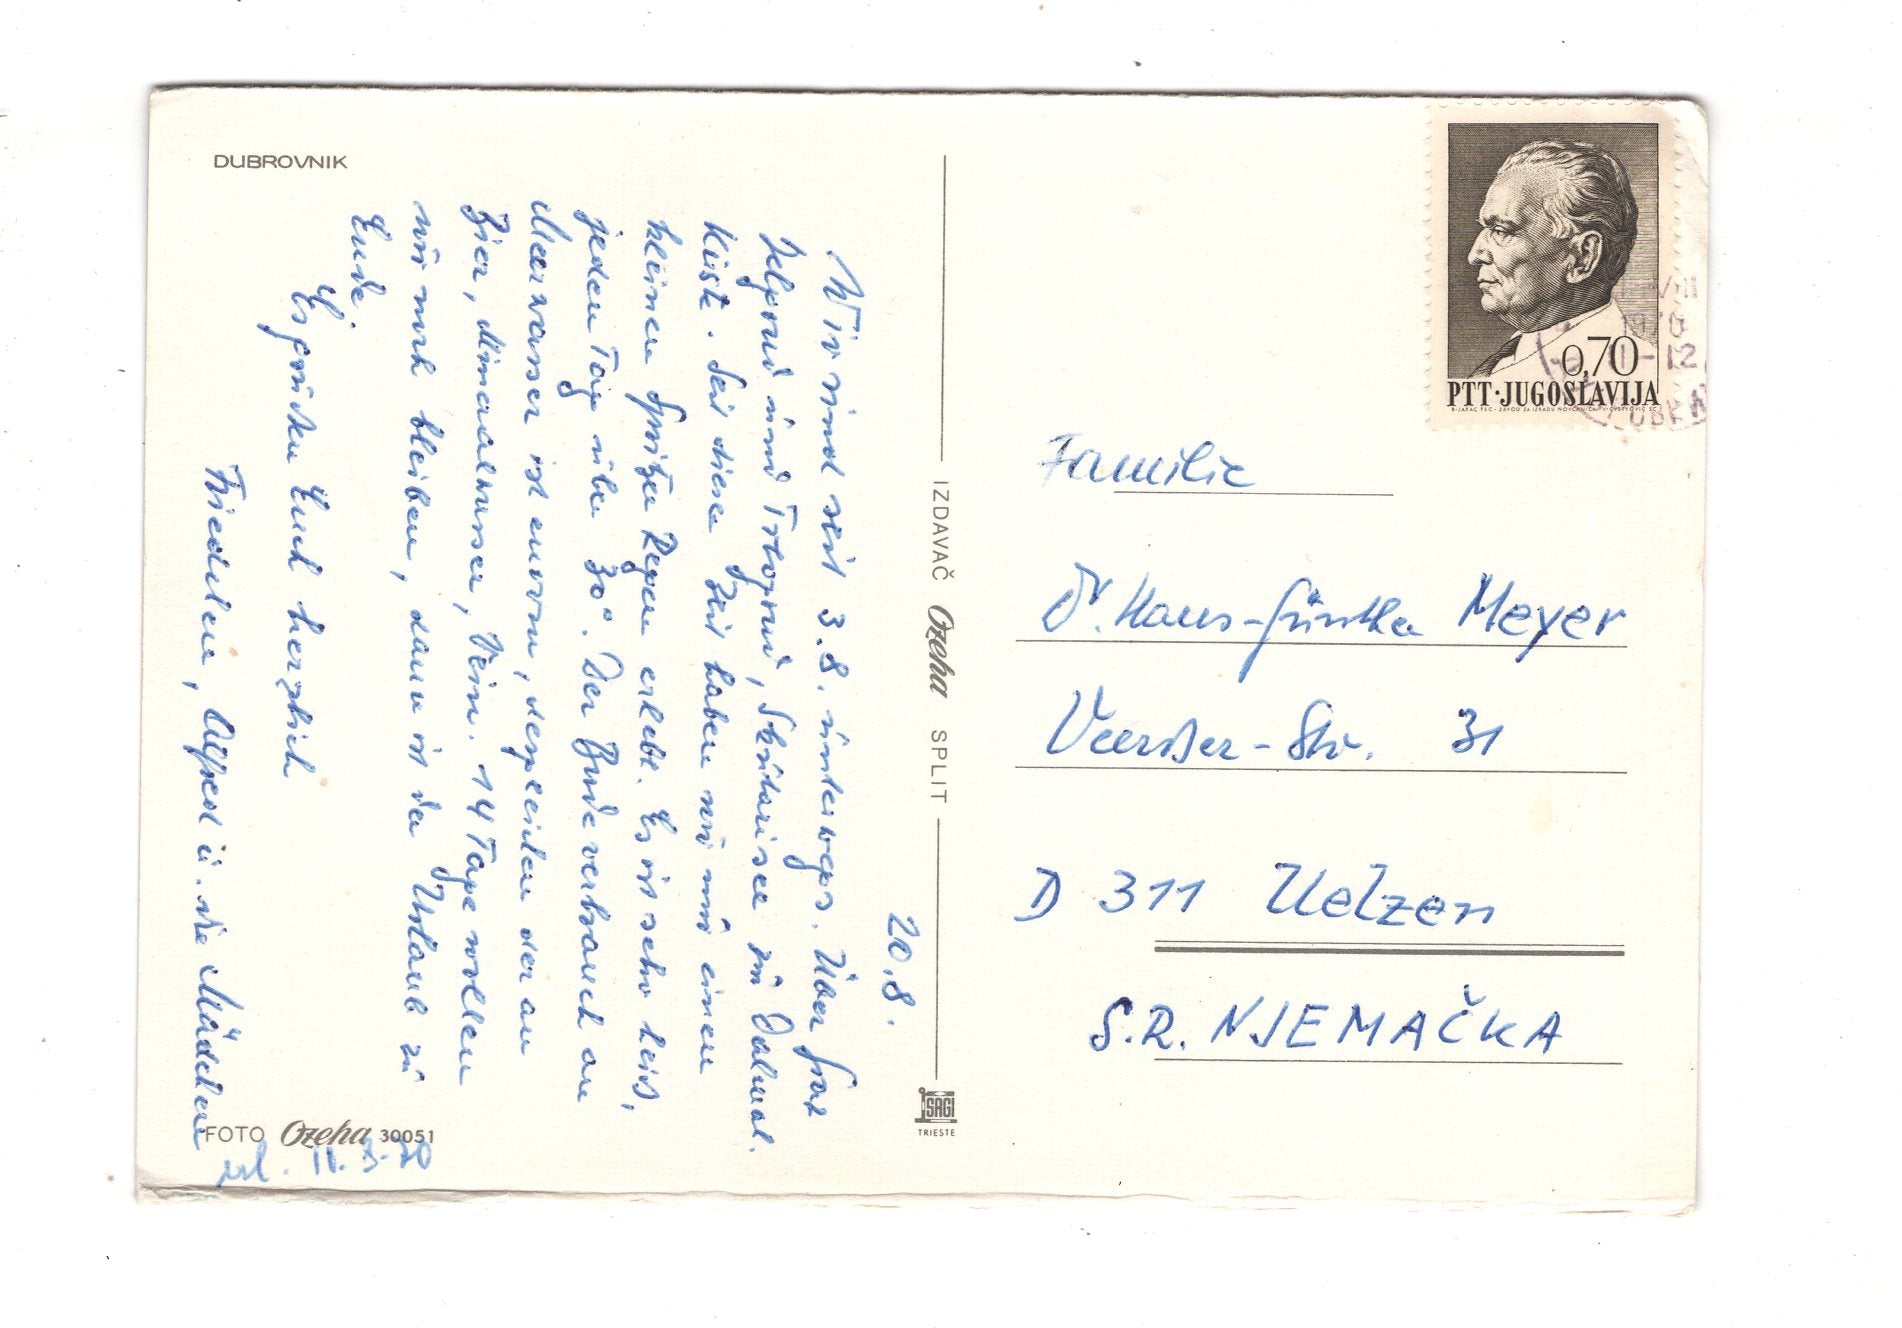 DUBROVNIK
20.8.
Wir sind seit 3.8. unterwegs. Über Graz
Belgrad und Titograd, Skutarisee zur Dalmat.
Küste. Seit dieser Zeit haben wir nur einen
kleinen Spritzer Regen erlebt. Es ist sehr heiß,
jeden Tag über 30°. Der Bude verbrauch an
Meerwasser ist enorm, desgleichen der an
Bier, Mineralwasser, Wein. 14 Tage wollen
wir noch bleiben, dann ist der Urlaub zu
Ende.
Es grüßen Euch herzlich
Friedchen, Alfred u. die Mädchen
FOTO Ozeha 30051
IZDAVAČ Ozeha SPLIT
SAGI
TRIESTE
0,70
PTT·JUGOSLAVIJA
1970
11-12
Familie
Dr. Hans-Günther Meyer
Veerßer-Str. 31
D 311 Uelzen
S.R. NJEMAČKA